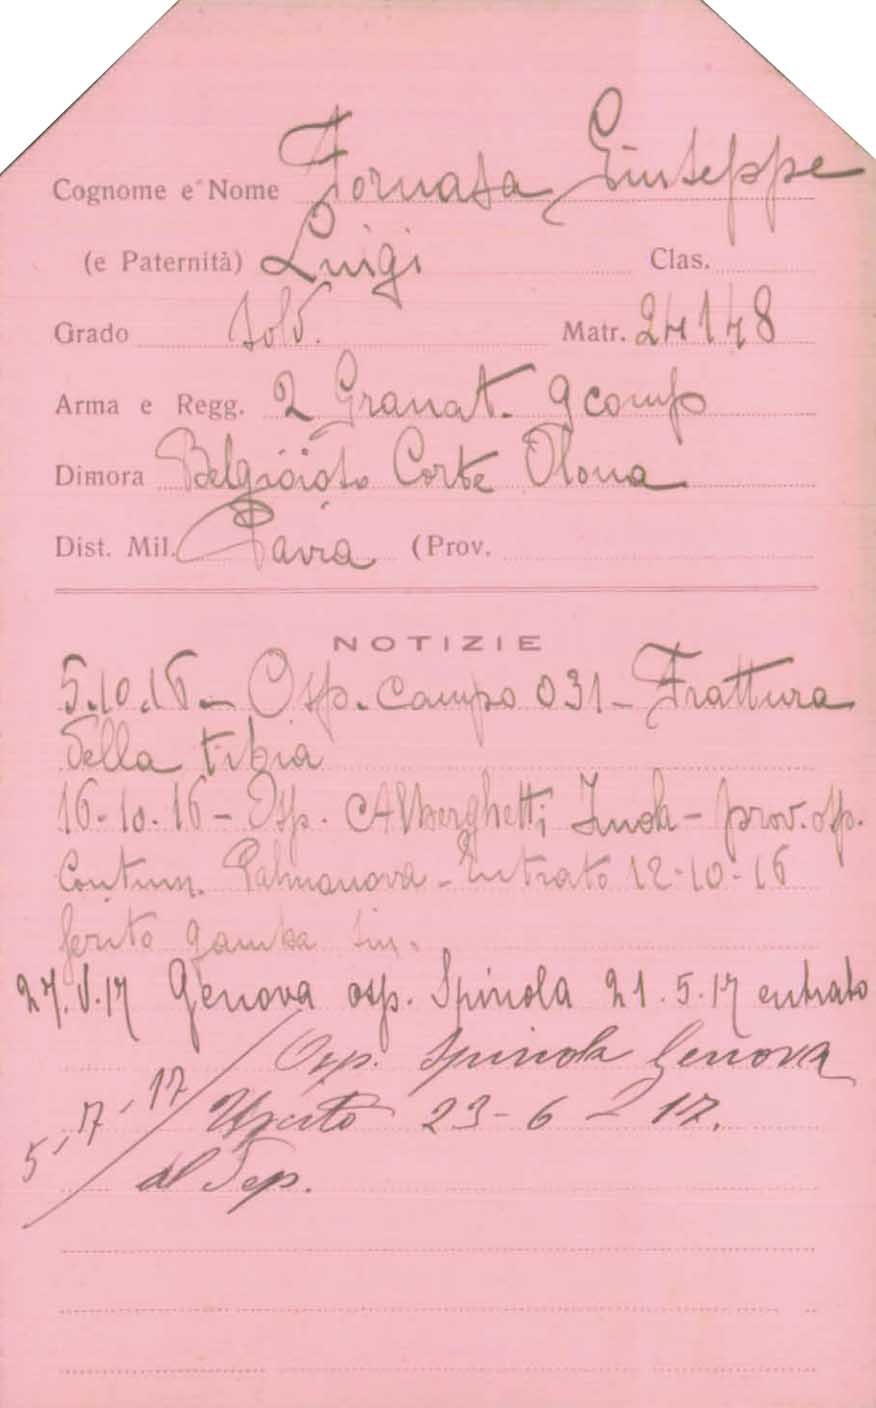 Cognome e Nome Fornasa Giuseppe
(e Paternità) Luigi Clas.
Grado sold. Matr. 24148
Arma e Regg. 2 Granat. 9 comp
Dimora Belgioioso Corte Olona
Dist. Mil. Pavia (Prov.
NOTIZIE
5.10.16 - Osp. Campo 031 - Frattura
della tibia
16-10-16 - Osp. Alberghetti Imola - prov. osp.
Contum. Palmanova - Entrato 12-10-16
ferito gamba sin.
27.V.17 Genova osp. Spinola 21.5.17 entrato
5-7-17 Osp. Spinola Genova
Uscito 23-6-917.
al Dep.